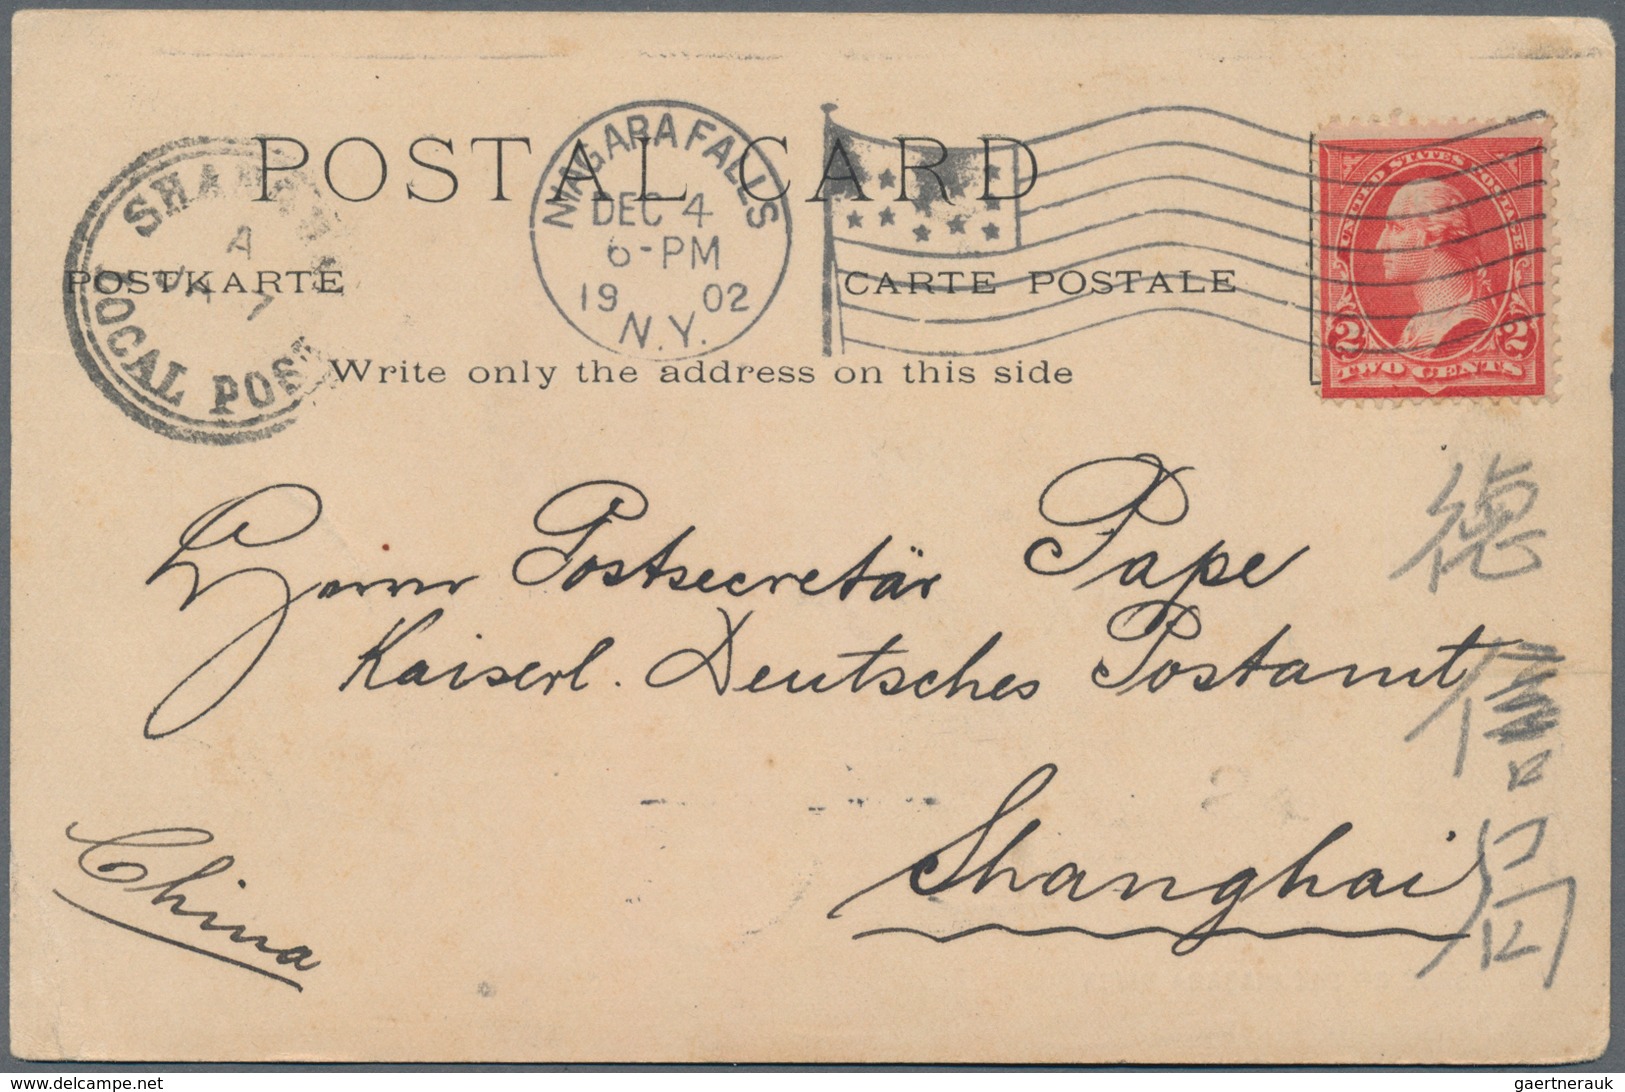 POSTAL CARD
NIAGARA FALLS
DEC 4
6-PM
19 02
N.Y.
A
7
LOCAL POST
POSTKARTE
CARTE POSTALE
Write only the address on this side
UNITED STATES POSTAGE
2 2
TWO CENTS
Herrn Postsecretär Pape
Kaiserl. Deutsches Postamt
Shanghai
China
德信局
delcampe.net
gaertnerauk